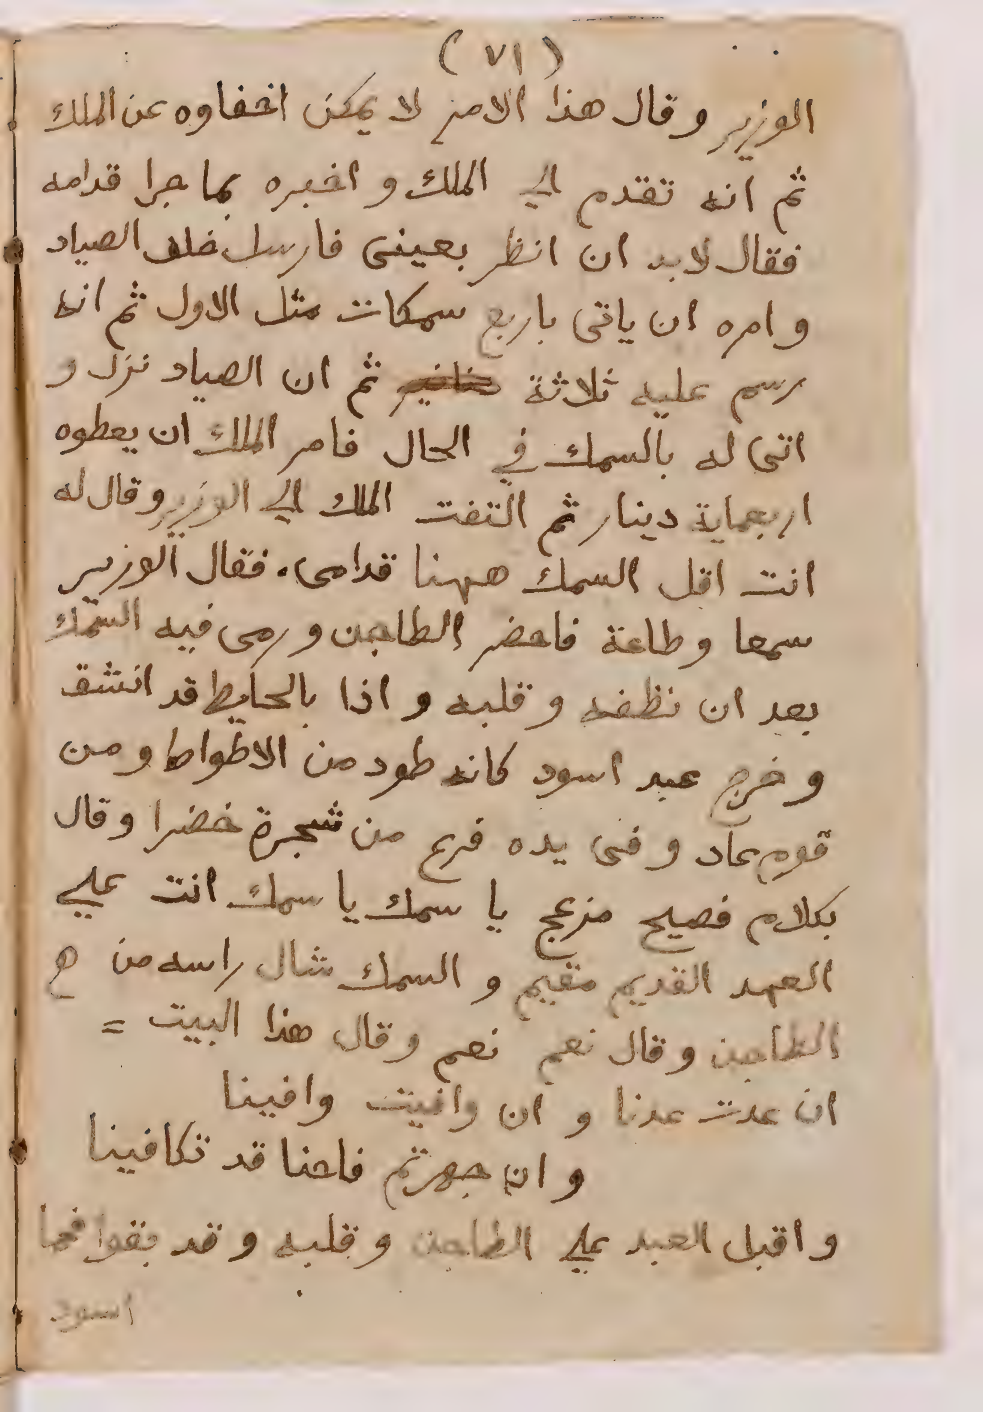 (٧١)
الوزير وقال هذا الامر لا يمكن اخفاوه عن الملك
ثم انه تقدم الي الملك و اخبره بما جرا قدامه
فقال لابد ان انظر بعينى فارسل خلف الصياد
و امره ان ياتى باربع سمكات مثل الاول ثم انه
رسم عليه ثلاثة ثم ان الصياد نزل و
اتى له بالسمك في الحال فامر الملك ان يعطوه
اربعماية دينار ثم التفت الملك الي الوزير وقال له
انت اقل السمك ههنا قدامى . فقال الوزير
سمعا و طاعة فاحضر الطاجن و رمى فيه السمك
بعد ان نظفه و قلبه و اذا بالحايط قد انشق
و خرج عبد اسود كانه طود من الاطواط و من
قوم عاد و فى يده فرع من شجرة خضرا وقال
بكلام فصيح مزعج يا سمك يا سمك انت علي
العهد القديم مقيم و السمك شال راسه من
الطاجن وقال نعم نعم وقال هذا البيت =
ان عدت عدنا و ان وافيت وافينا
و ان جهرتم فاحنا قد تكافينا
و اقبل العبد علي الطاجن و قلبه و قد بقوا فحما
اسود